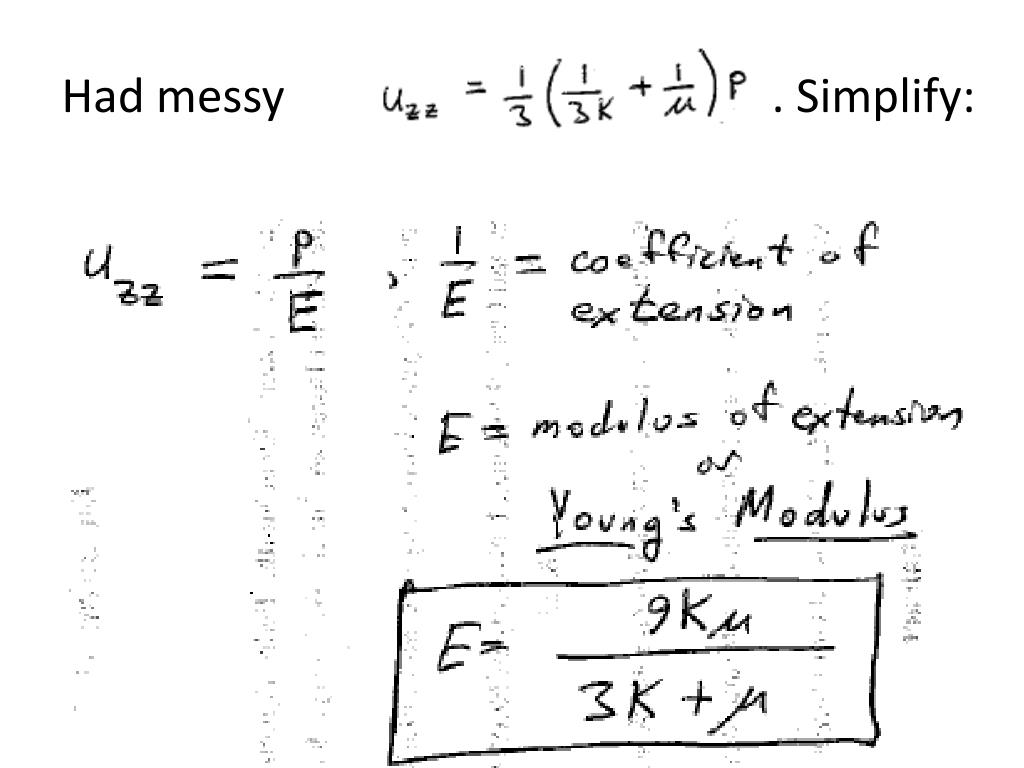 Had messy u_zz = 1/3 (1/3K + 1/μ) P . Simplify:
u_zz = P/E , 1/E = coefficient of
extension
E = modulus of extension
or
Young's Modulus
E = 9Kμ / 3K + μ